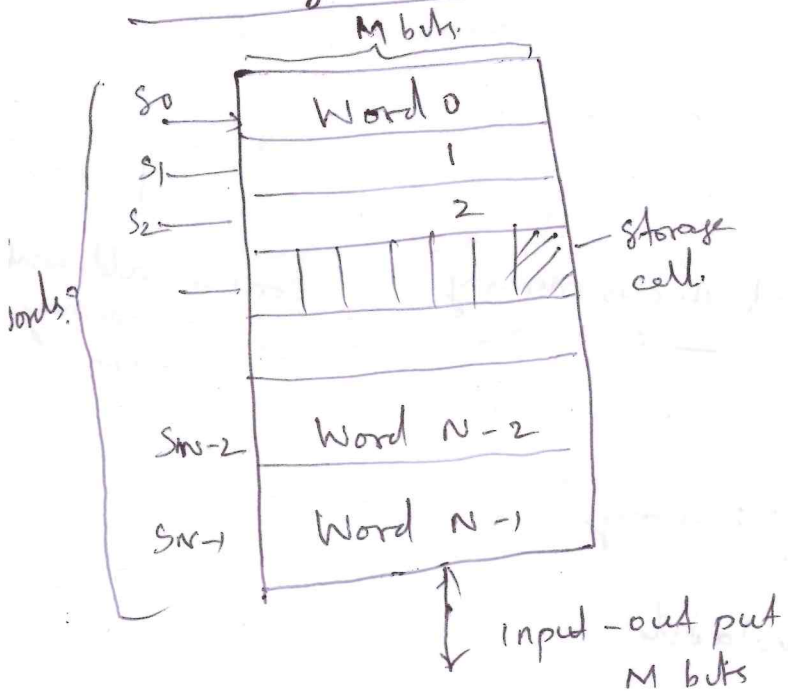 M bits.
S0
Word 0
S1
1
S2
2
storage
cell.
SN-2
Word N-2
SN-1
Word N-1
input-out put
M bits